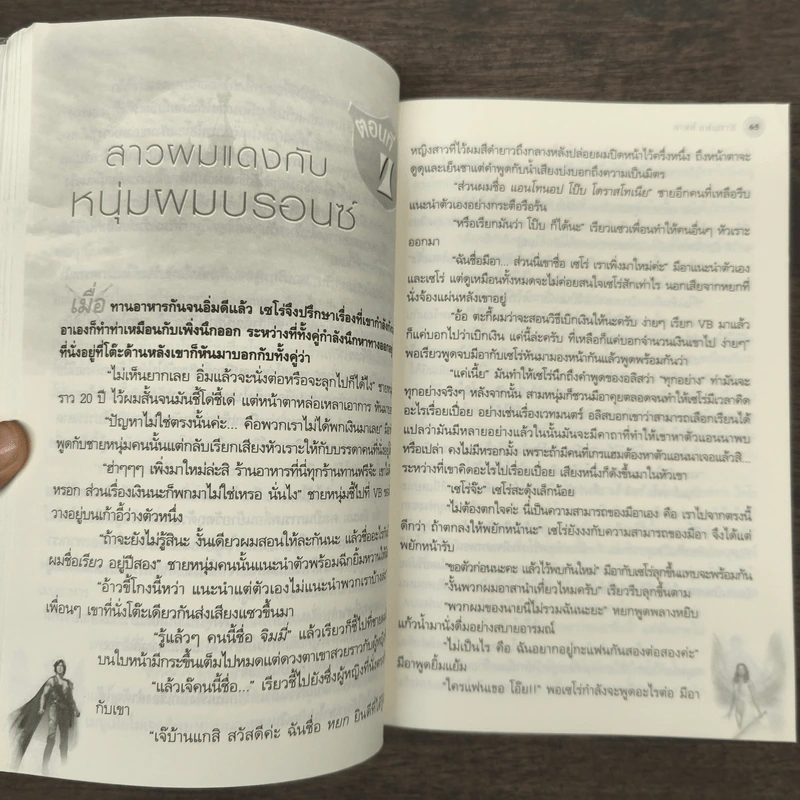 ตอนที่
4
สาวผมแดงกับ
หนุ่มผมบรอนซ์
เมื่อ ทานอาหารกันจนอิ่มดีแล้ว เซโร่จึงปรึกษาเรื่องที่เขากำลัง
อาเองก็ทำท่าเหมือนกับเพิ่งนึกออก ระหว่างที่ทั้งคู่กำลังนึกหาทาง
ที่นั่งอยู่ที่โต๊ะด้านหลังเขาก็หันมาบอกกับทั้งคู่ว่า
"ไม่เห็นยากเลย อิ่มแล้วจะนั่งต่อหรือจะลุกไปก็ได้ไง"
ราว 20 ปี ไว้ผมสั้นจนมันชี้โด่ชี้เด่ แต่หน้าตาหล่อเหลาเอาการ
"ปัญหาไม่ใช่ตรงนั้นค่ะ... คือพวกเราไม่ได้พกเงินมาเลย"
พูดกับชายหนุ่มคนนั้นแต่กลับเรียกเสียงหัวเราะให้กับบรรดาคนที่นั่ง
"ฮ่าๆๆๆ เพิ่งมาใหม่ล่ะสิ ร้านอาหารที่นี่ทุกร้านทานฟรีจ้ะ
หรอก ส่วนเรื่องเงินนะก็พกมาไม่ใช่เหรอ นั่นไง" ชายหนุ่มชี้ไปที่ VB
วางอยู่บนเก้าอี้ว่างตัวหนึ่ง
"ถ้าจะยังไม่รู้สินะ งั้นเดี๋ยวผมสอนให้ละกันนะ แล้วชื่ออะไร
ผมชื่อเรียว อยู่ปีสอง" ชายหนุ่มคนนั้นแนะนำตัวพร้อมฉีกยิ้มหวาน
"อ้าวขี้โกงนี่หว่า แนะนำแต่ตัวเองไม่แนะนำพวกเราบ้าง
เพื่อนๆ เขาที่นั่งโต๊ะเดียวกันส่งเสียงแซวขึ้นมา
"รู้แล้วๆ คนนี้ชื่อ จิมมี่" แล้วเรียวก็ชี้ไปที่ชาย
บนใบหน้ามีกระขึ้นเต็มไปหมดแต่ดวงตาเขาสวยราวกับผู้หญิง
"แล้วเจ๊คนนี้ชื่อ..." เรียวชี้ไปยังซึ่งผู้หญิงที่นั่ง
กับเขา
"เจ๊บ้านแกสิ สวัสดีค่ะ ฉันชื่อ หยก ยินดีที่ได้
65
หญิงสาวที่ไว้ผมสีดำยาวถึงกลางหลังปล่อยผมปิดหน้าไว้ครึ่งหนึ่ง ถึงหน้าตาจะ
ดูดุและเย็นชาแต่คำพูดกับน้ำเสียงบ่งบอกถึงความเป็นมิตร
"ส่วนผมชื่อ แอนโทนอป โป๊บ โตราสโทเนีย" ชายอีกคนที่เหลือรีบ
แนะนำตัวเองอย่างกระตือรือร้น
"หรือเรียกมันว่า โป๊บ ก็ได้นะ" เรียวแซวเพื่อนทำให้คนอื่นๆ หัวเราะ
ออกมา
"ฉันชื่อมีอา... ส่วนนี่เขาชื่อ เซโร่ เราเพิ่งมาใหม่ค่ะ" มีอาแนะนำตัวเอง
และเซโร่ แต่ดูเหมือนทั้งหมดจะไม่ค่อยสนใจเซโร่สักเท่าไร นอกเสียจากหยกที่
นั่งจ้องแผ่นหลังเขาอยู่
"อ้อ ตะกี้ผมว่าจะสอนวิธีเบิกเงินให้นะครับ ง่ายๆ เรียก VB มาแล้ว
ก็แค่บอกไปว่าเบิกเงิน แค่นี้ล่ะครับ ที่เหลือก็แค่บอกจำนวนเงินเขาไป ง่ายๆ"
พอเรียวพูดจบมีอากับเซโร่หันมามองหน้ากันแล้วพูดพร้อมกันว่า
"แค่เนี้ย" มันทำให้เซโร่นึกถึงคำพูดของอลิสว่า "ทุกอย่าง" ท่ามันจะ
ทุกอย่างจริงๆ หลังจากนั้น สามหนุ่มก็ชวนมีอาคุยตลอดจนทำให้เซโร่มีเวลาคิด
อะไรเรื่อยเปื่อย อย่างเช่นเรื่องเวทมนตร์ อลิสบอกเขาว่าสามารถเลือกเรียนได้
แปลว่ามันมีหลายอย่างแล้วในนั้นมันจะมีคาถาที่ทำให้เขาหาตัวแอนนาพบ
หรือเปล่า คงไม่มีหรอกมั้ง เพราะถ้ามีคนที่เกรแฮมต้องหาตัวแอนนาเจอแล้วสิ...
ระหว่างที่เขาคิดอะไรไปเรื่อยเปื่อย เสียงหนึ่งก็ดังขึ้นมาในหัวเขา
"เซโร่จ๊ะ" เซโร่สะดุ้งเล็กน้อย
"ไม่ต้องตกใจค่ะ นี่เป็นความสามารถของมีอาเอง คือ เราไปจากตรงนี้
ดีกว่า ถ้าตกลงให้พยักหน้านะ" เซโร่ยังงงกับความสามารถของมีอา จึงได้แต่
พยักหน้ารับ
"ขอตัวก่อนนะคะ แล้วไว้พบกันใหม่" มีอากับเซโร่ลุกขึ้นแทบจะพร้อมกัน
"งั้นพวกผมอาสานำเที่ยวไหมครับ" เรียวรีบลุกขึ้นตาม
"พวกผมของนายนี่ไม่รวมฉันนะยะ" หยกพูดพลางหยิบ
แก้วน้ำมานั่งดื่มอย่างสบายอารมณ์
"ไม่เป็นไร คือ ฉันอยากอยู่กะแฟนกันสองต่อสองค่ะ"
มีอาพูดยิ้มแย้ม
"ใครแฟนเธอ โอ๊ย!!" พอเซโร่กำลังจะพูดอะไรต่อ มีอา